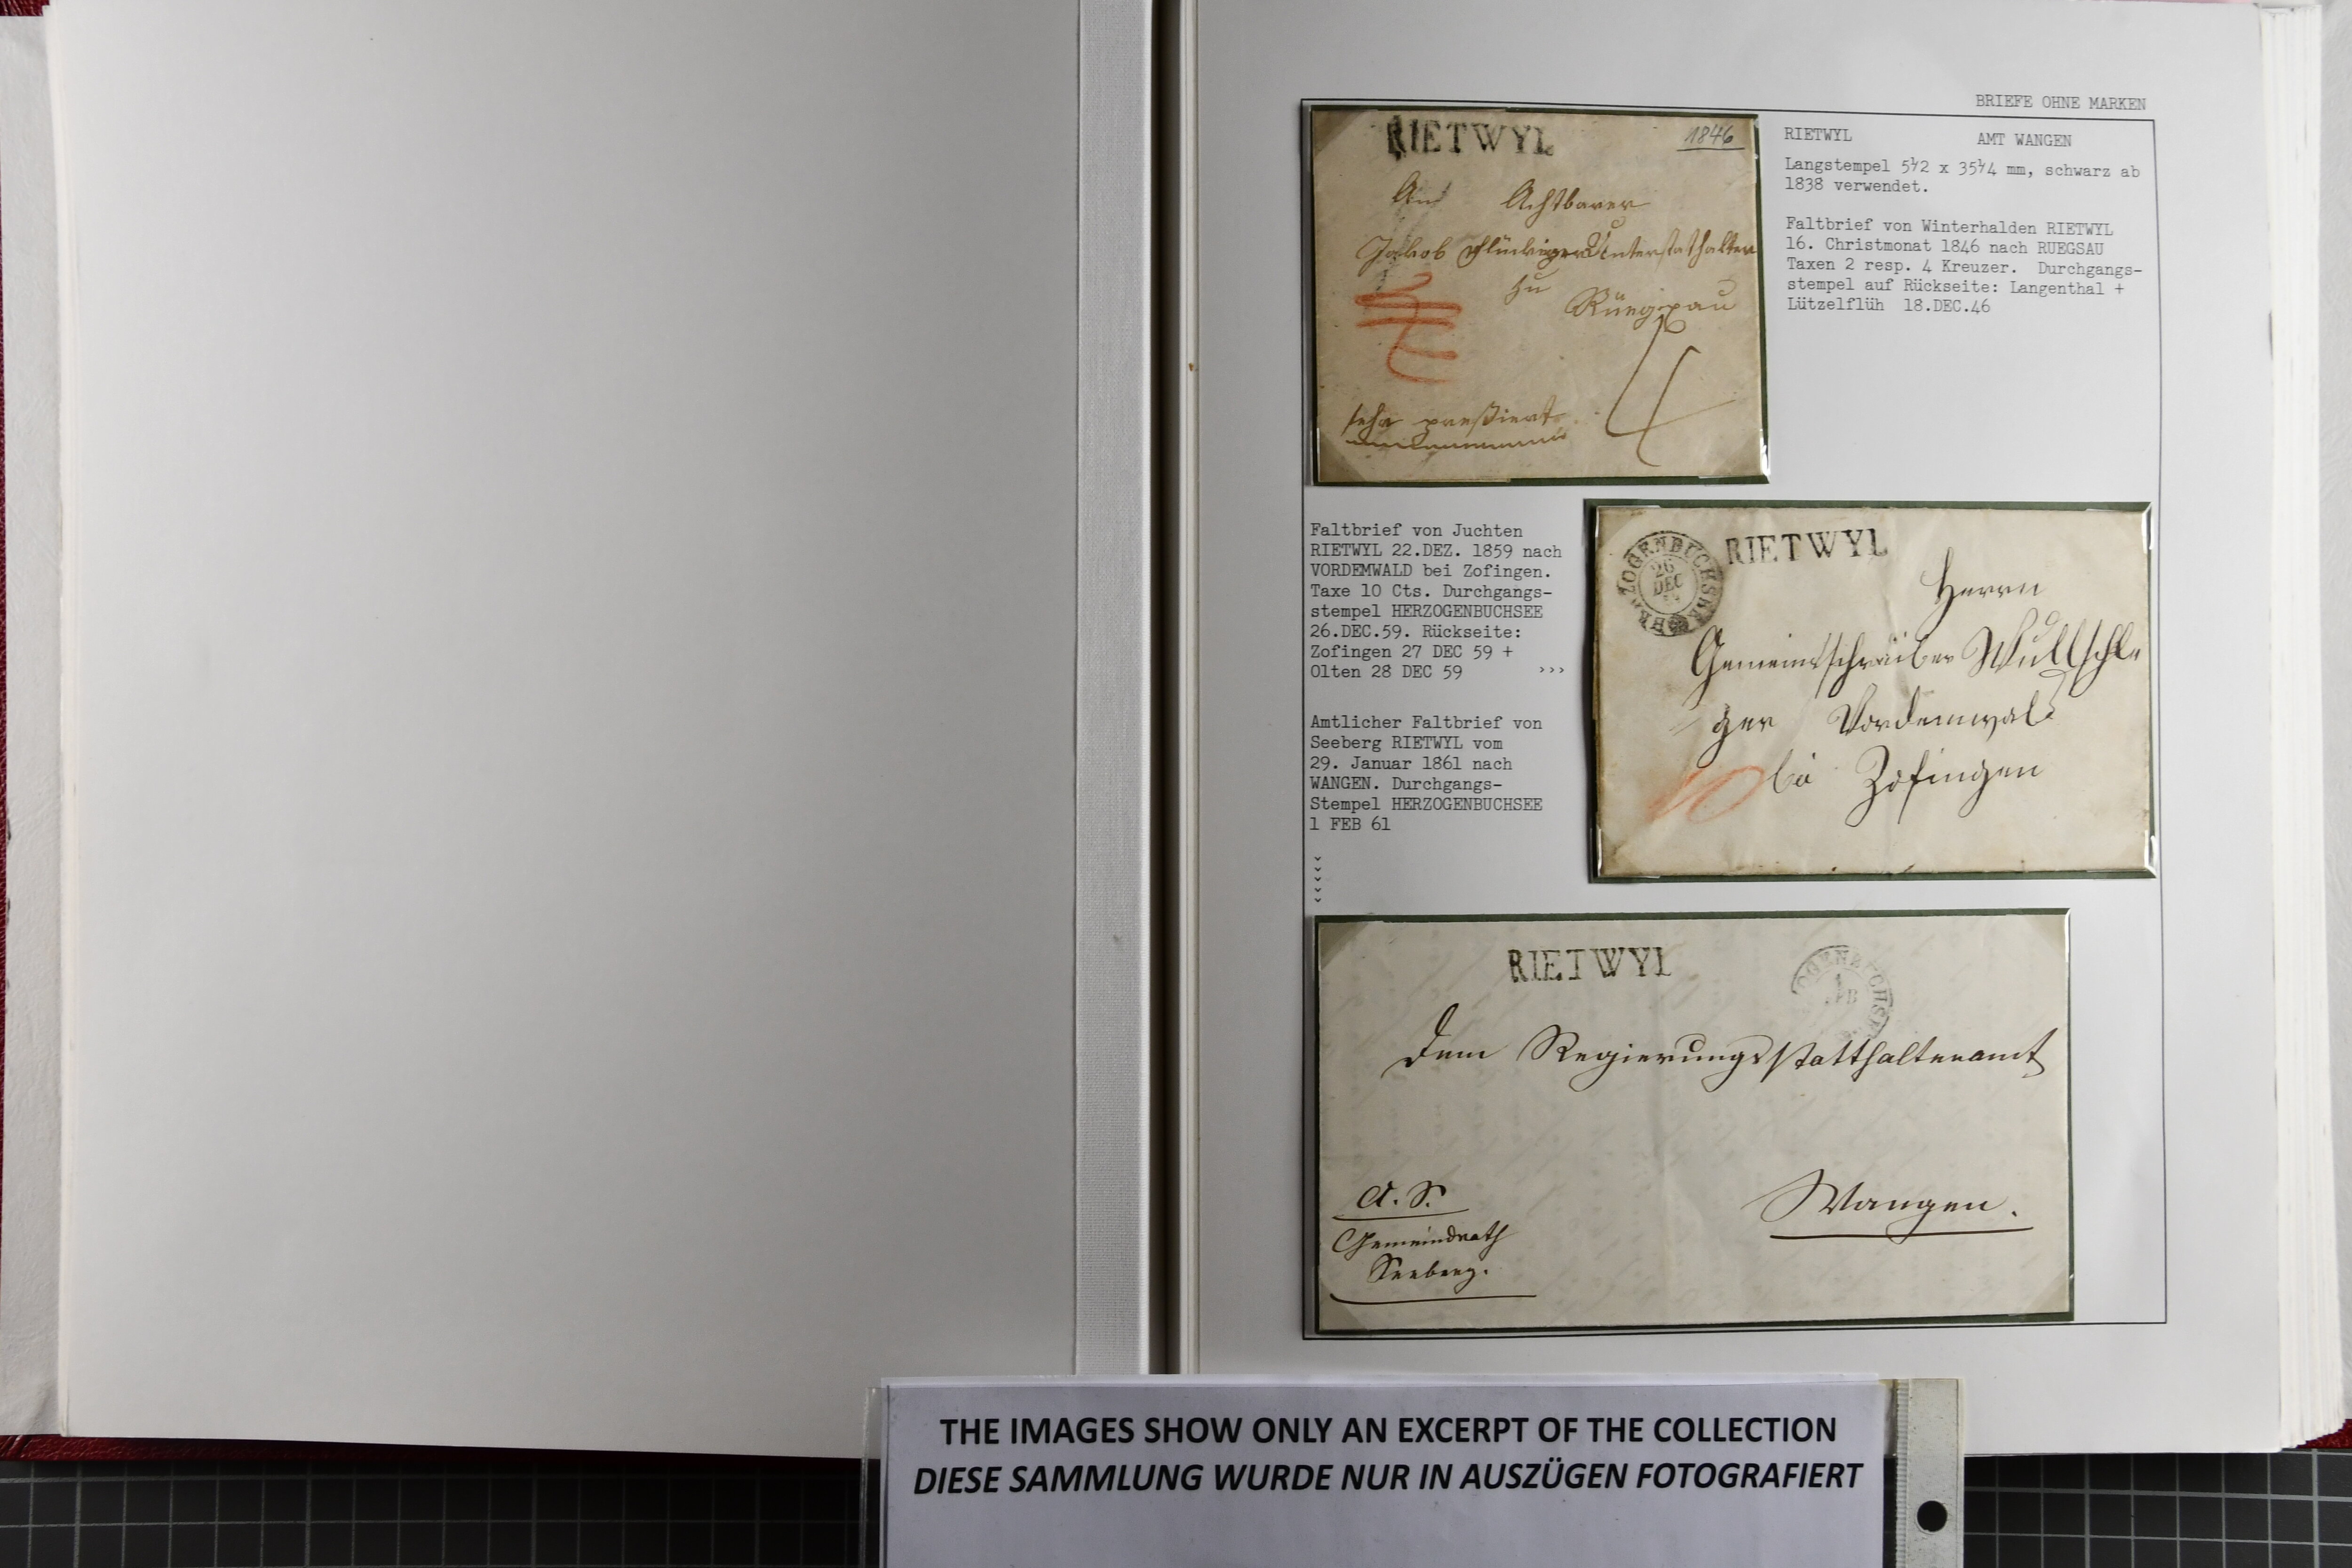 BRIEFE OHNE MARKEN
RIETWYL AMT WANGEN
Langstempel 5½ x 35¼ mm, schwarz ab
1838 verwendet.
Faltbrief von Winterhalden RIETWYL
16. Christmonat 1846 nach RUEGSAU
Taxen 2 resp. 4 Kreuzer. Durchgangs-
stempel auf Rückseite: Langenthal +
Lützelflüh 18.DEC.46
RIETWYL 1846
An Achtbarer
Jakob Flückiger Unterstathalter
zu
Rüegsau
4
sehr preßiert
Faltbrief von Juchten
RIETWYL 22.DEZ. 1859 nach
VORDEMWALD bei Zofingen.
Taxe 10 Cts. Durchgangs-
stempel HERZOGENBUCHSEE
26.DEC.59. Rückseite:
Zofingen 27 DEC 59 +
Olten 28 DEC 59 >>>
Amtlicher Faltbrief von
Seeberg RIETWYL vom
29. Januar 1861 nach
WANGEN. Durchgangs-
Stempel HERZOGENBUCHSEE
1 FEB 61
HERZOGENBUCHSEE
26
DEC
RIETWYL
Herrn
Gemeindsschreiber Wullschle
ger Vordemwald
10 bei Zofingen
RIETWYL
1
FEB
Dem Regierungsstatthalteramt
Wangen.
A. S.
Gemeindrath
Seeberg.
THE IMAGES SHOW ONLY AN EXCERPT OF THE COLLECTION
DIESE SAMMLUNG WURDE NUR IN AUSZÜGEN FOTOGRAFIERT